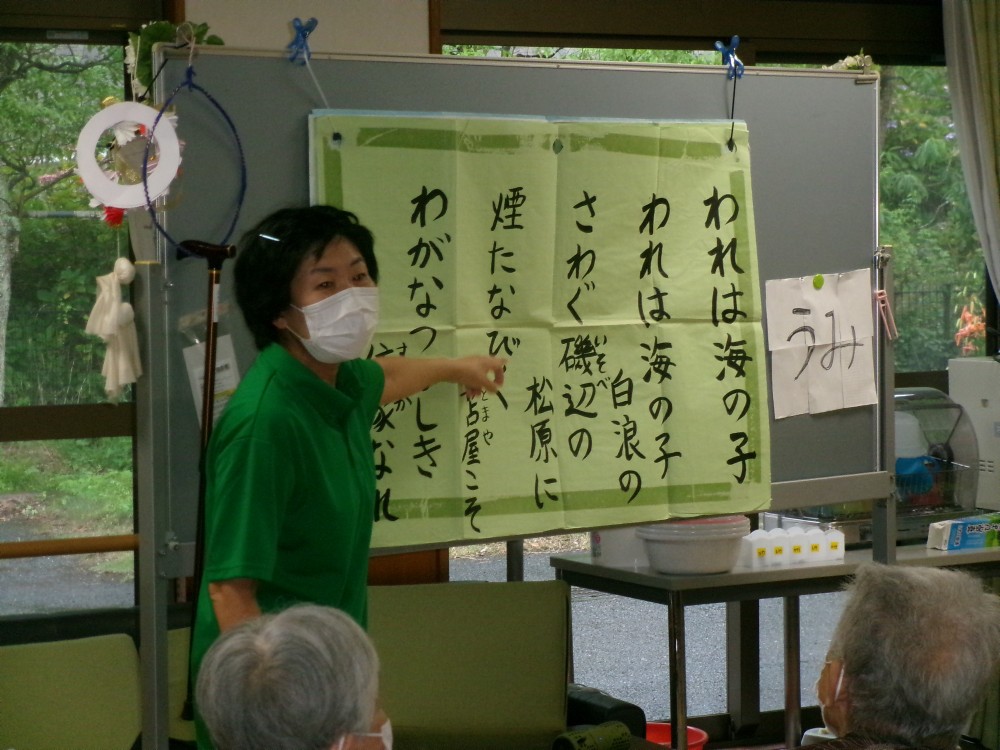 われは海の子
われは海の子
白浪の
さわぐ磯辺の
いそべ
松原に
煙たなび
屋こそ
とまや
わがなつ
しき
家なれ
うみ